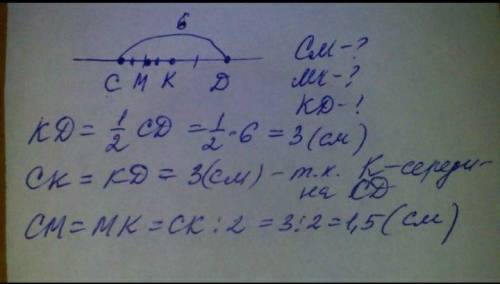 6
C M K D
CM-?
MK-?
KD-!
KD = 1/2 CD = 1/2 · 6 = 3 (см)
CK = KD = 3(см) - т.к. K-середи-
на CD
CM = MK = CK : 2 = 3:2 = 1,5 (см)